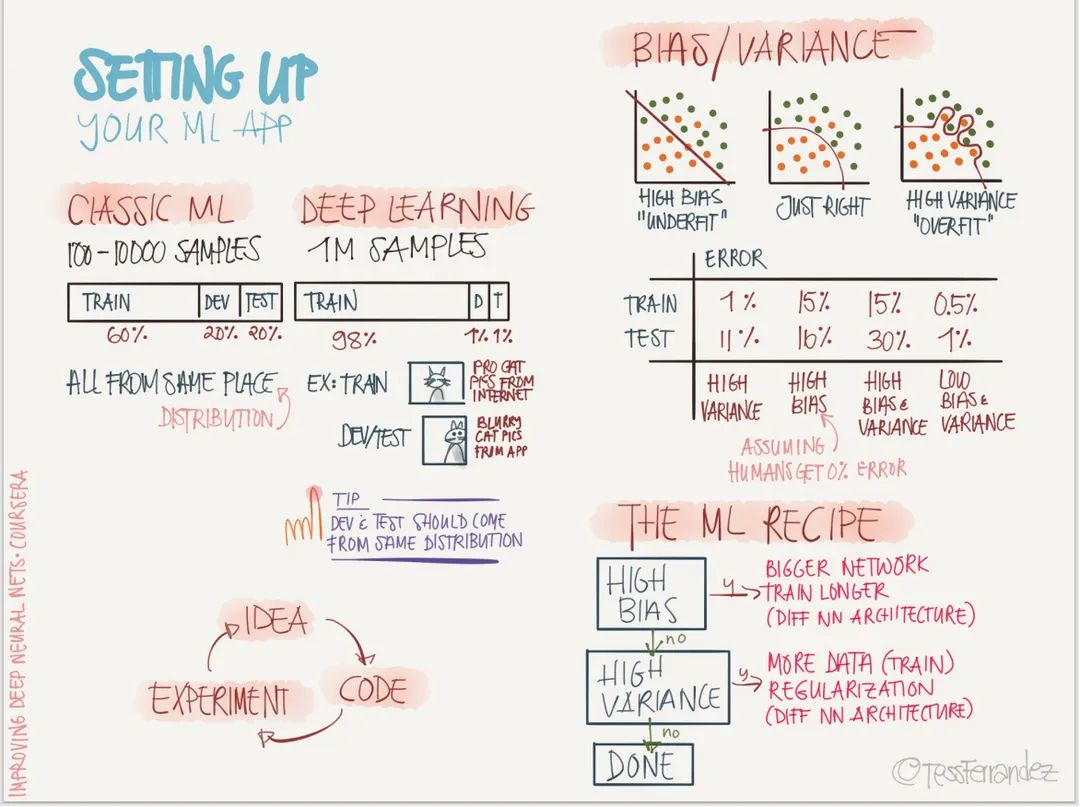 SETTING UP
YOUR ML APP
CLASSIC ML
100-10000 SAMPLES
TRAIN DEV TEST
60% 20% 20%
ALL FROM SAME PLACE
DISTRIBUTION
DEEP LEARNING
1M SAMPLES
TRAIN D T
98% 1% 1%
EX: TRAIN
PRO CAT
PICS FROM
INTERNET
DEV/TEST
BLURRY
CAT PICS
FROM APP
TIP
DEV & TEST SHOULD COME
FROM SAME DISTRIBUTION
IDEA
CODE
EXPERIMENT
BIAS/VARIANCE
HIGH BIAS
"UNDERFIT"
JUST RIGHT
HIGH VARIANCE
"OVERFIT"
ERROR
TRAIN 1% 15% 15% 0.5%
TEST 11% 16% 30% 1%
HIGH
VARIANCE
HIGH
BIAS
HIGH
BIAS &
VARIANCE
LOW
BIAS &
VARIANCE
ASSUMING
HUMANS GET 0% ERROR
THE ML RECIPE
HIGH
BIAS
y
BIGGER NETWORK
TRAIN LONGER
(DIFF NN ARCHITECTURE)
no
HIGH
VARIANCE
y
MORE DATA (TRAIN)
REGULARIZATION
(DIFF NN ARCHITECTURE)
no
DONE
IMPROVING DEEP NEURAL NETS · COURSERA
©TessFerrandez